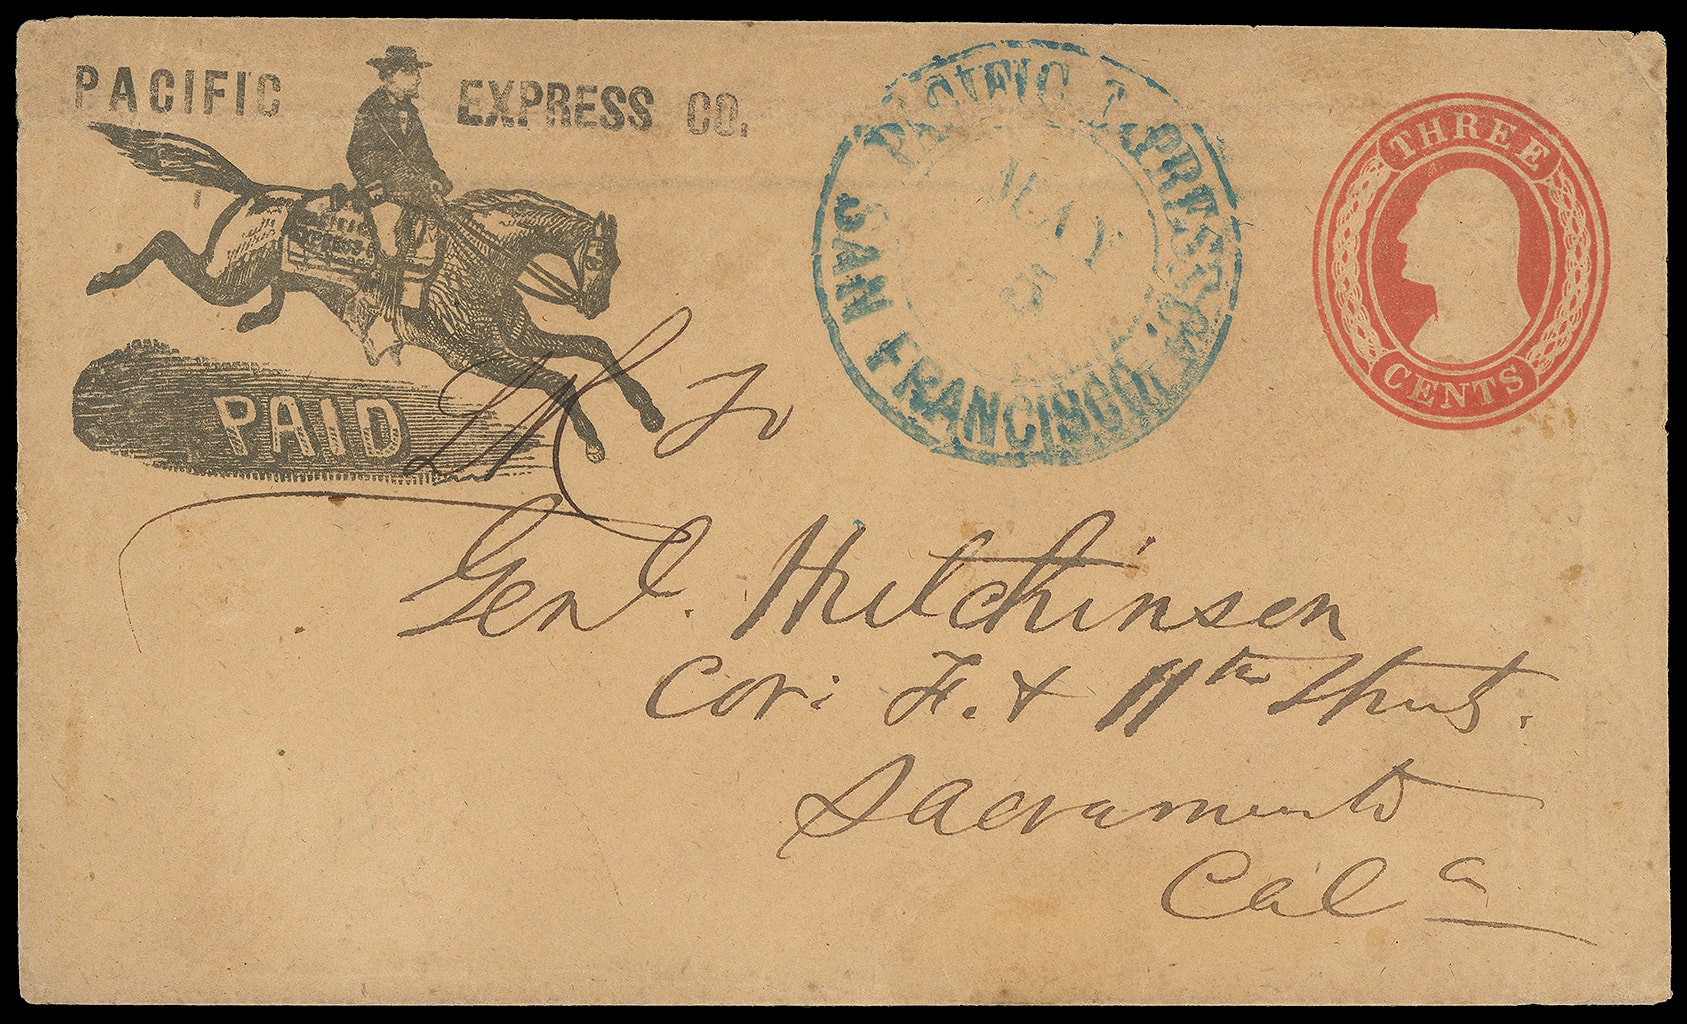 PACIFIC EXPRESS CO.
EXPRESS
PAID
PACIFIC EXPRESS CO.
MAY
SAN FRANCISCO
THREE
CENTS
To
Genl. Hutchinson
Cor: F. & 11th Strts.
Sacramento
Cala